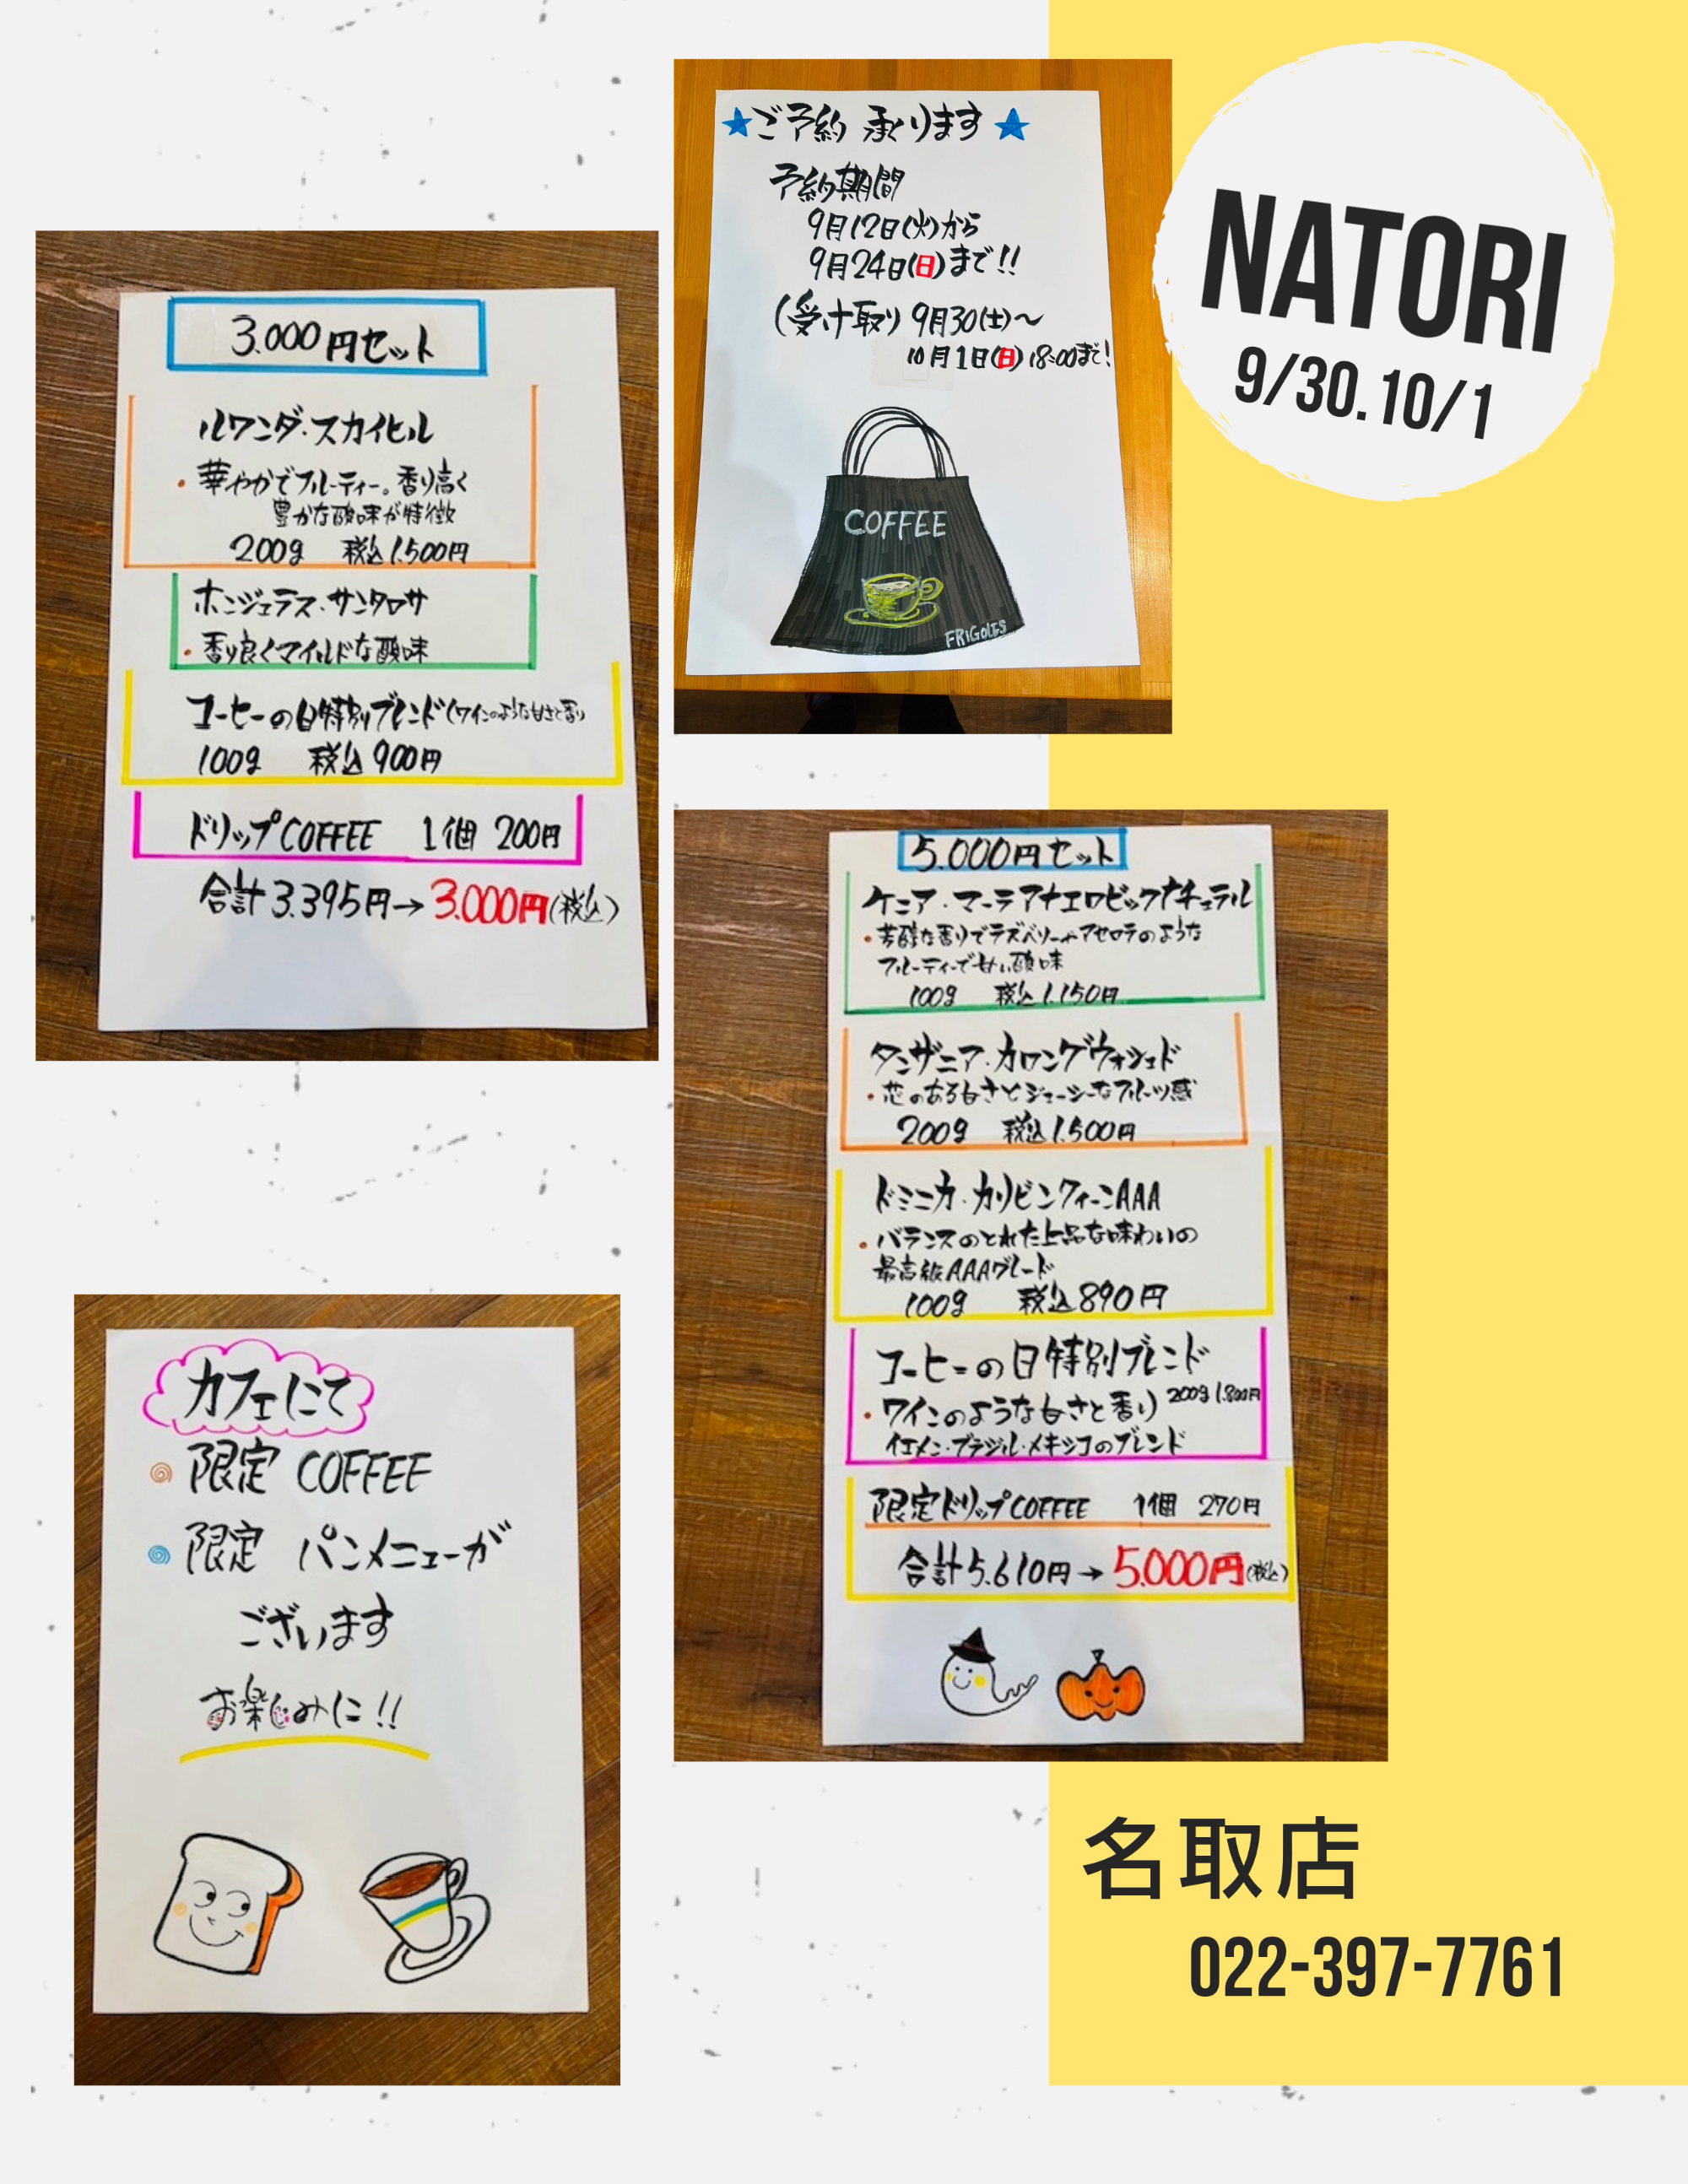 ★ご予約 承ります★
予約期間
9月12日(火)から
9月24日(日)まで!!
(受け取り 9月30(土)〜
10月1日(日)18:00まで!
COFFEE
FRIGOLES
NATORI
9/30.10/1
3.000円セット
ルワンダ・スカイヒル
・華やかでフルーティー。香り高く
豊かな酸味が特徴
200g 税込1.500円
ホンジュラス・サンタロサ
・香り良くマイルドな酸味
コーヒーの日特別ブレンド(ワインのような甘さと香り
100g 税込900円
ドリップCOFFEE 1個 200円
合計3.395円→3.000円(税込)
5.000円セット
ケニア・マーラアナエロビックナチュラル
・芳醇な香りでラズベリーやアセロラのような
フルーティーで甘い酸味
100g 税込1.150円
タンザニア・カロングウォシュド
・芯のある甘さとジューシーなフルーツ感
200g 税込1.500円
ドミニカ・カリビンクィーンAAA
・バランスのとれた上品な味わいの
最高級AAAグレード
100g 税込890円
コーヒーの日特別ブレンド
・ワインのような甘さと香り 200g 1.800円
イエメン・ブラジル・メキシコのブレンド
限定ドリップCOFFEE 1個 270円
合計5.610円→5.000円(税込)
カフェにて
限定 COFFEE
限定 パンメニューが
ございます
お楽しみに!!
名取店
022-397-7761